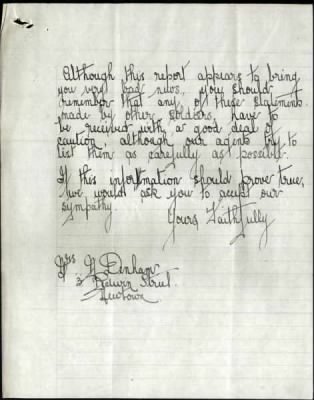 Although this report appears to bring
you very bad news, you should
remember that any of these statements
made by other soldiers, have to
be received with a good deal of
caution, although our agents try to
list them as carefully as possible.
If this information should prove true,
we would ask you to accept our
sympathy.
Yours Faithfully
Mrs Denham
Street.
Newtown